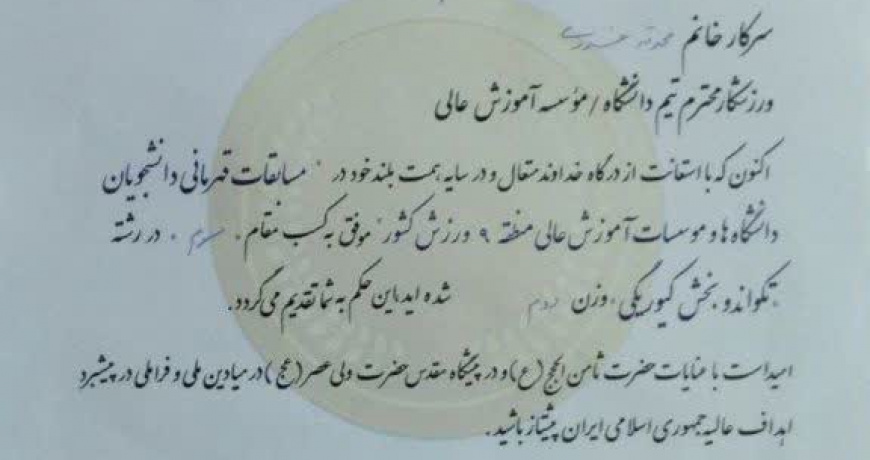 سرکار خانم
ورزشکار محترم تیم دانشگاه / مؤسسه آموزش عالی
اکنون که با استعانت از درگاه خداوند متعال و در سایه همت بلند خود در " مسابقات قهرمانی دانشجویان
دانشگاه ها و موسسات آموزش عالی منطقه ۹ ورزش کشور" موفق به کسب مقام " سوم " در رشته
"تکواندو بخش کیوروگی" وزن دوم شده اید، این حکم به شما تقدیم می گردد.
امید است با عنایات حضرت ثامن الحجج (ع) و در پیشگاه مقدس حضرت ولی عصر (عج) در میادین ملی و فراملی در پیشبرد
اهداف عالیه جمهوری اسلامی ایران پیشتاز باشید.